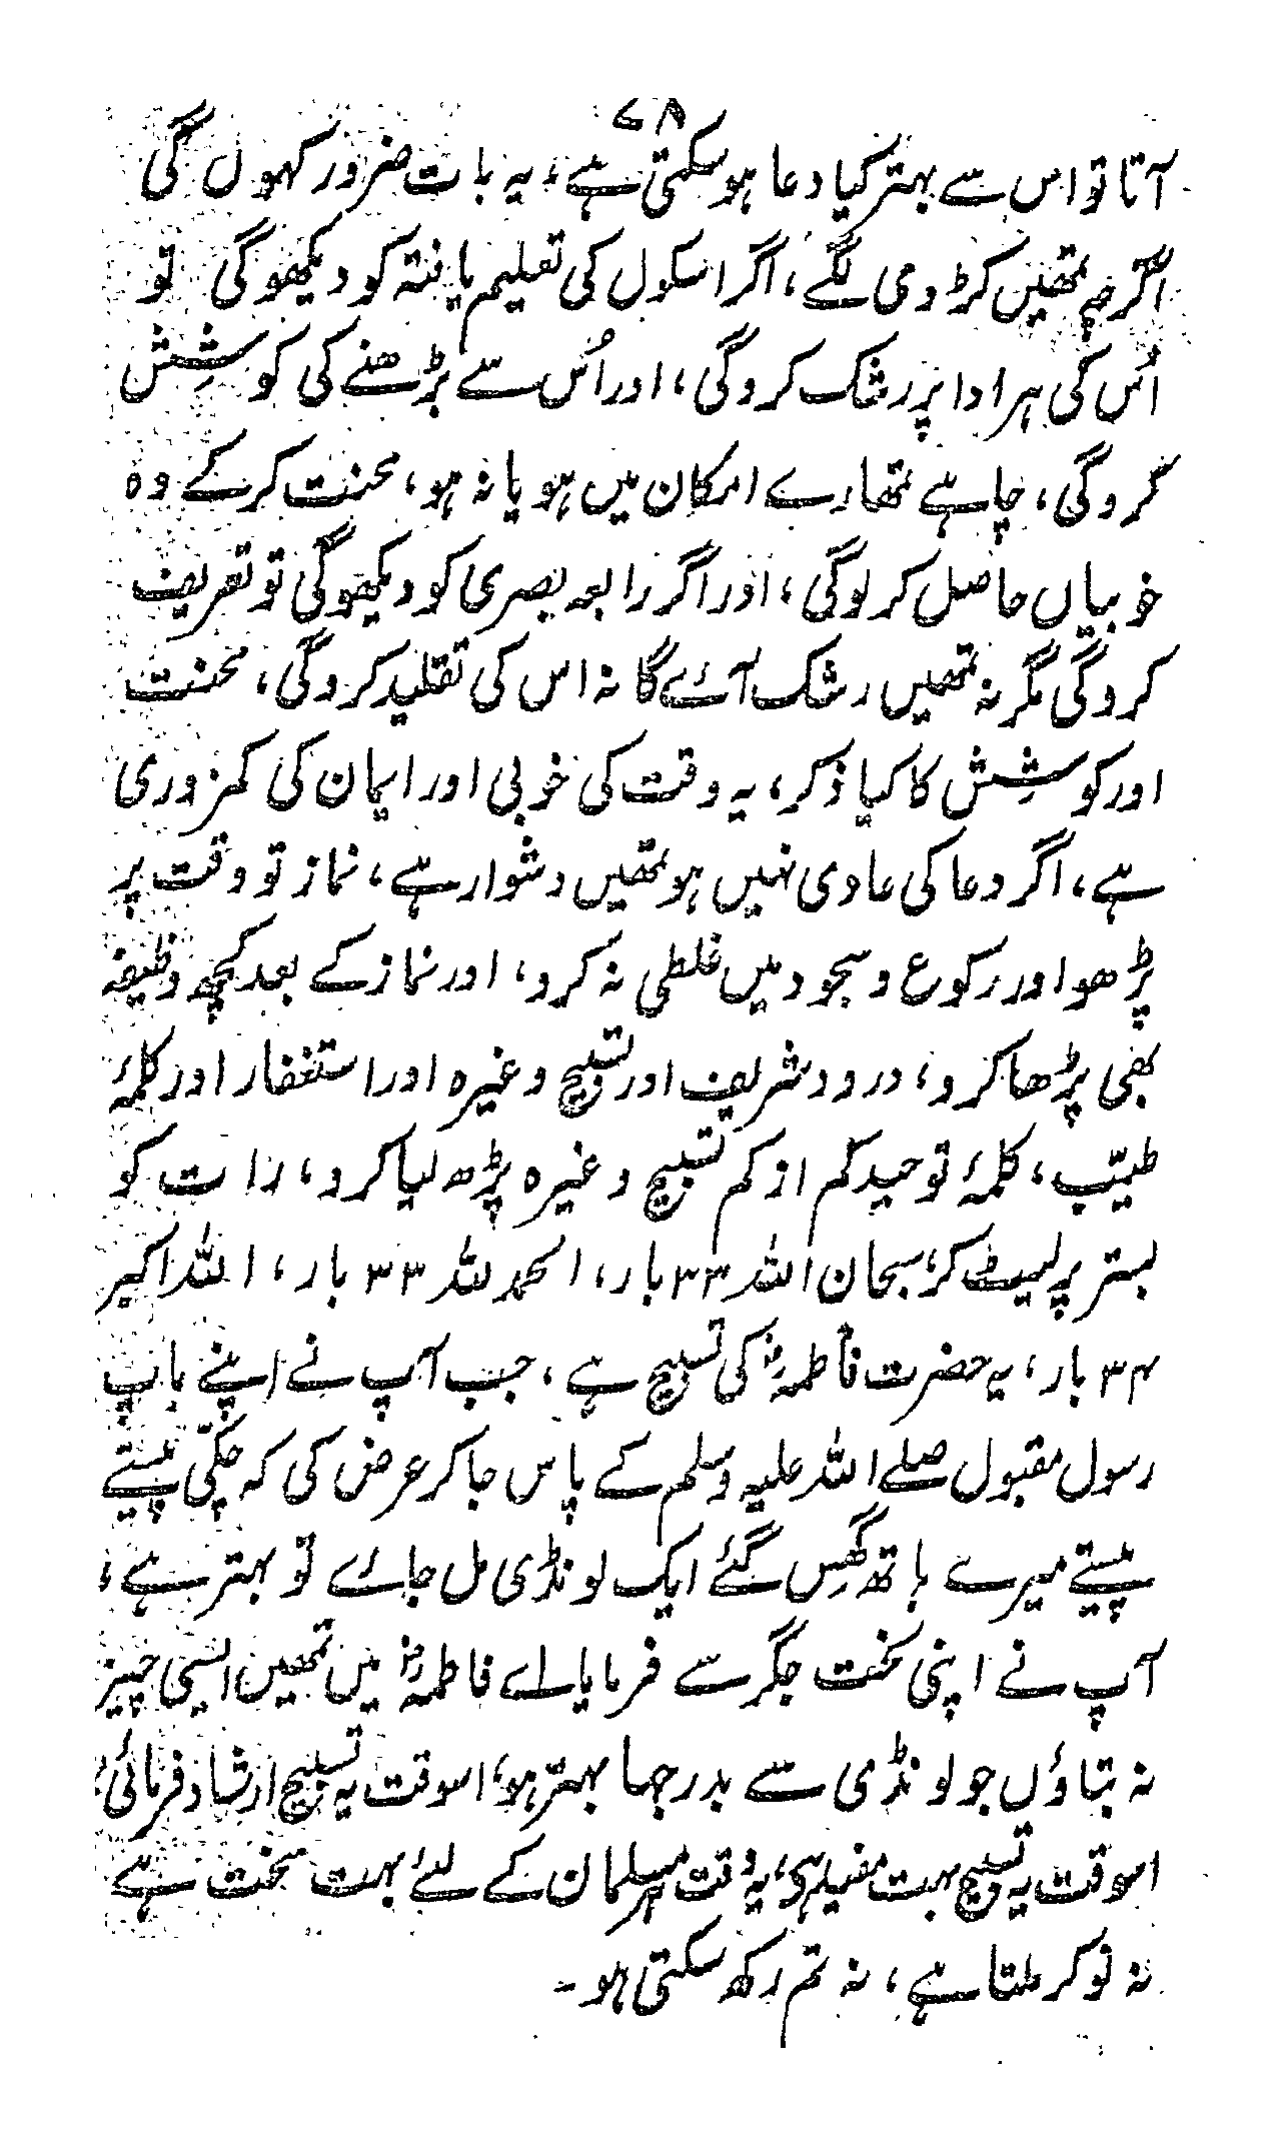 ۷۸
آتا تو اس سے بہتر کیا دعا ہو سکتی ہے، یہ بات ضرور کہوں گی
اگرچہ تمھیں کڑوی لگے، اگر اسکول کی تعلیم یافتہ کو دیکھو گی تو
اُس کی ہر ادا پر رشک کرو گی، اور اُس سے بڑھنے کی کوشِش
کرو گی، چاہے تمھارے امکان میں ہو یا نہ ہو، محنت کر کے وہ
خوبیاں حاصل کر لو گی، اور اگر رابعہ بصری کو دیکھو گی تو تعریف
کرو گی مگر نہ تمھیں رشک آئے گا نہ اس کی تقلید کرو گی، محنت
اور کوشِش کا کیا ذکر، یہ وقت کی خوبی اور ایمان کی کمزوری
ہے، اگر دعا کی عادی نہیں ہو تمھیں دشوار ہے، نماز تو وقت پر
پڑھو اور رکوع و سجود میں غلطی نہ کرو، اور نماز کے بعد کچھ وظیفہ
بھی پڑھا کرو، درود شریف اور تسبیح وغیرہ اور استغفار اور کلمۂ
طیّب، کلمۂ توحید کم از کم تسبیح وغیرہ پڑھ لیا کرو، رات کو
بستر پر لیٹ کر، سبحان اللہ ۳۳ بار، الحمد للہ ۳۳ بار، اللہ اکبر
۳۴ بار، یہ حضرت فاطمہؓ کی تسبیح ہے، جب آپ نے اپنے باپ
رسول مقبول صلے اللہ علیہ وسلم کے پاس جا کر عرض کی کہ چکّی پیستے
پیستے میرے ہاتھ گھِس گئے ایک لونڈی مل جائے تو بہتر ہے،
آپ نے اپنی لخت جگر سے فرمایا اے فاطمہؓ میں تمھیں ایسی چیز
نہ بتاؤں جو لونڈی سے بدرجہا بہتر ہو، اسوقت یہ تسبیح ارشاد فرمائی،
اسوقت یہ تسبیح بہت مفید ہی، یہ وقت مسلمان کے لئے بہت سخت ہے
نہ نوکر ملتا ہے، نہ تم رکھ سکتی ہو۔